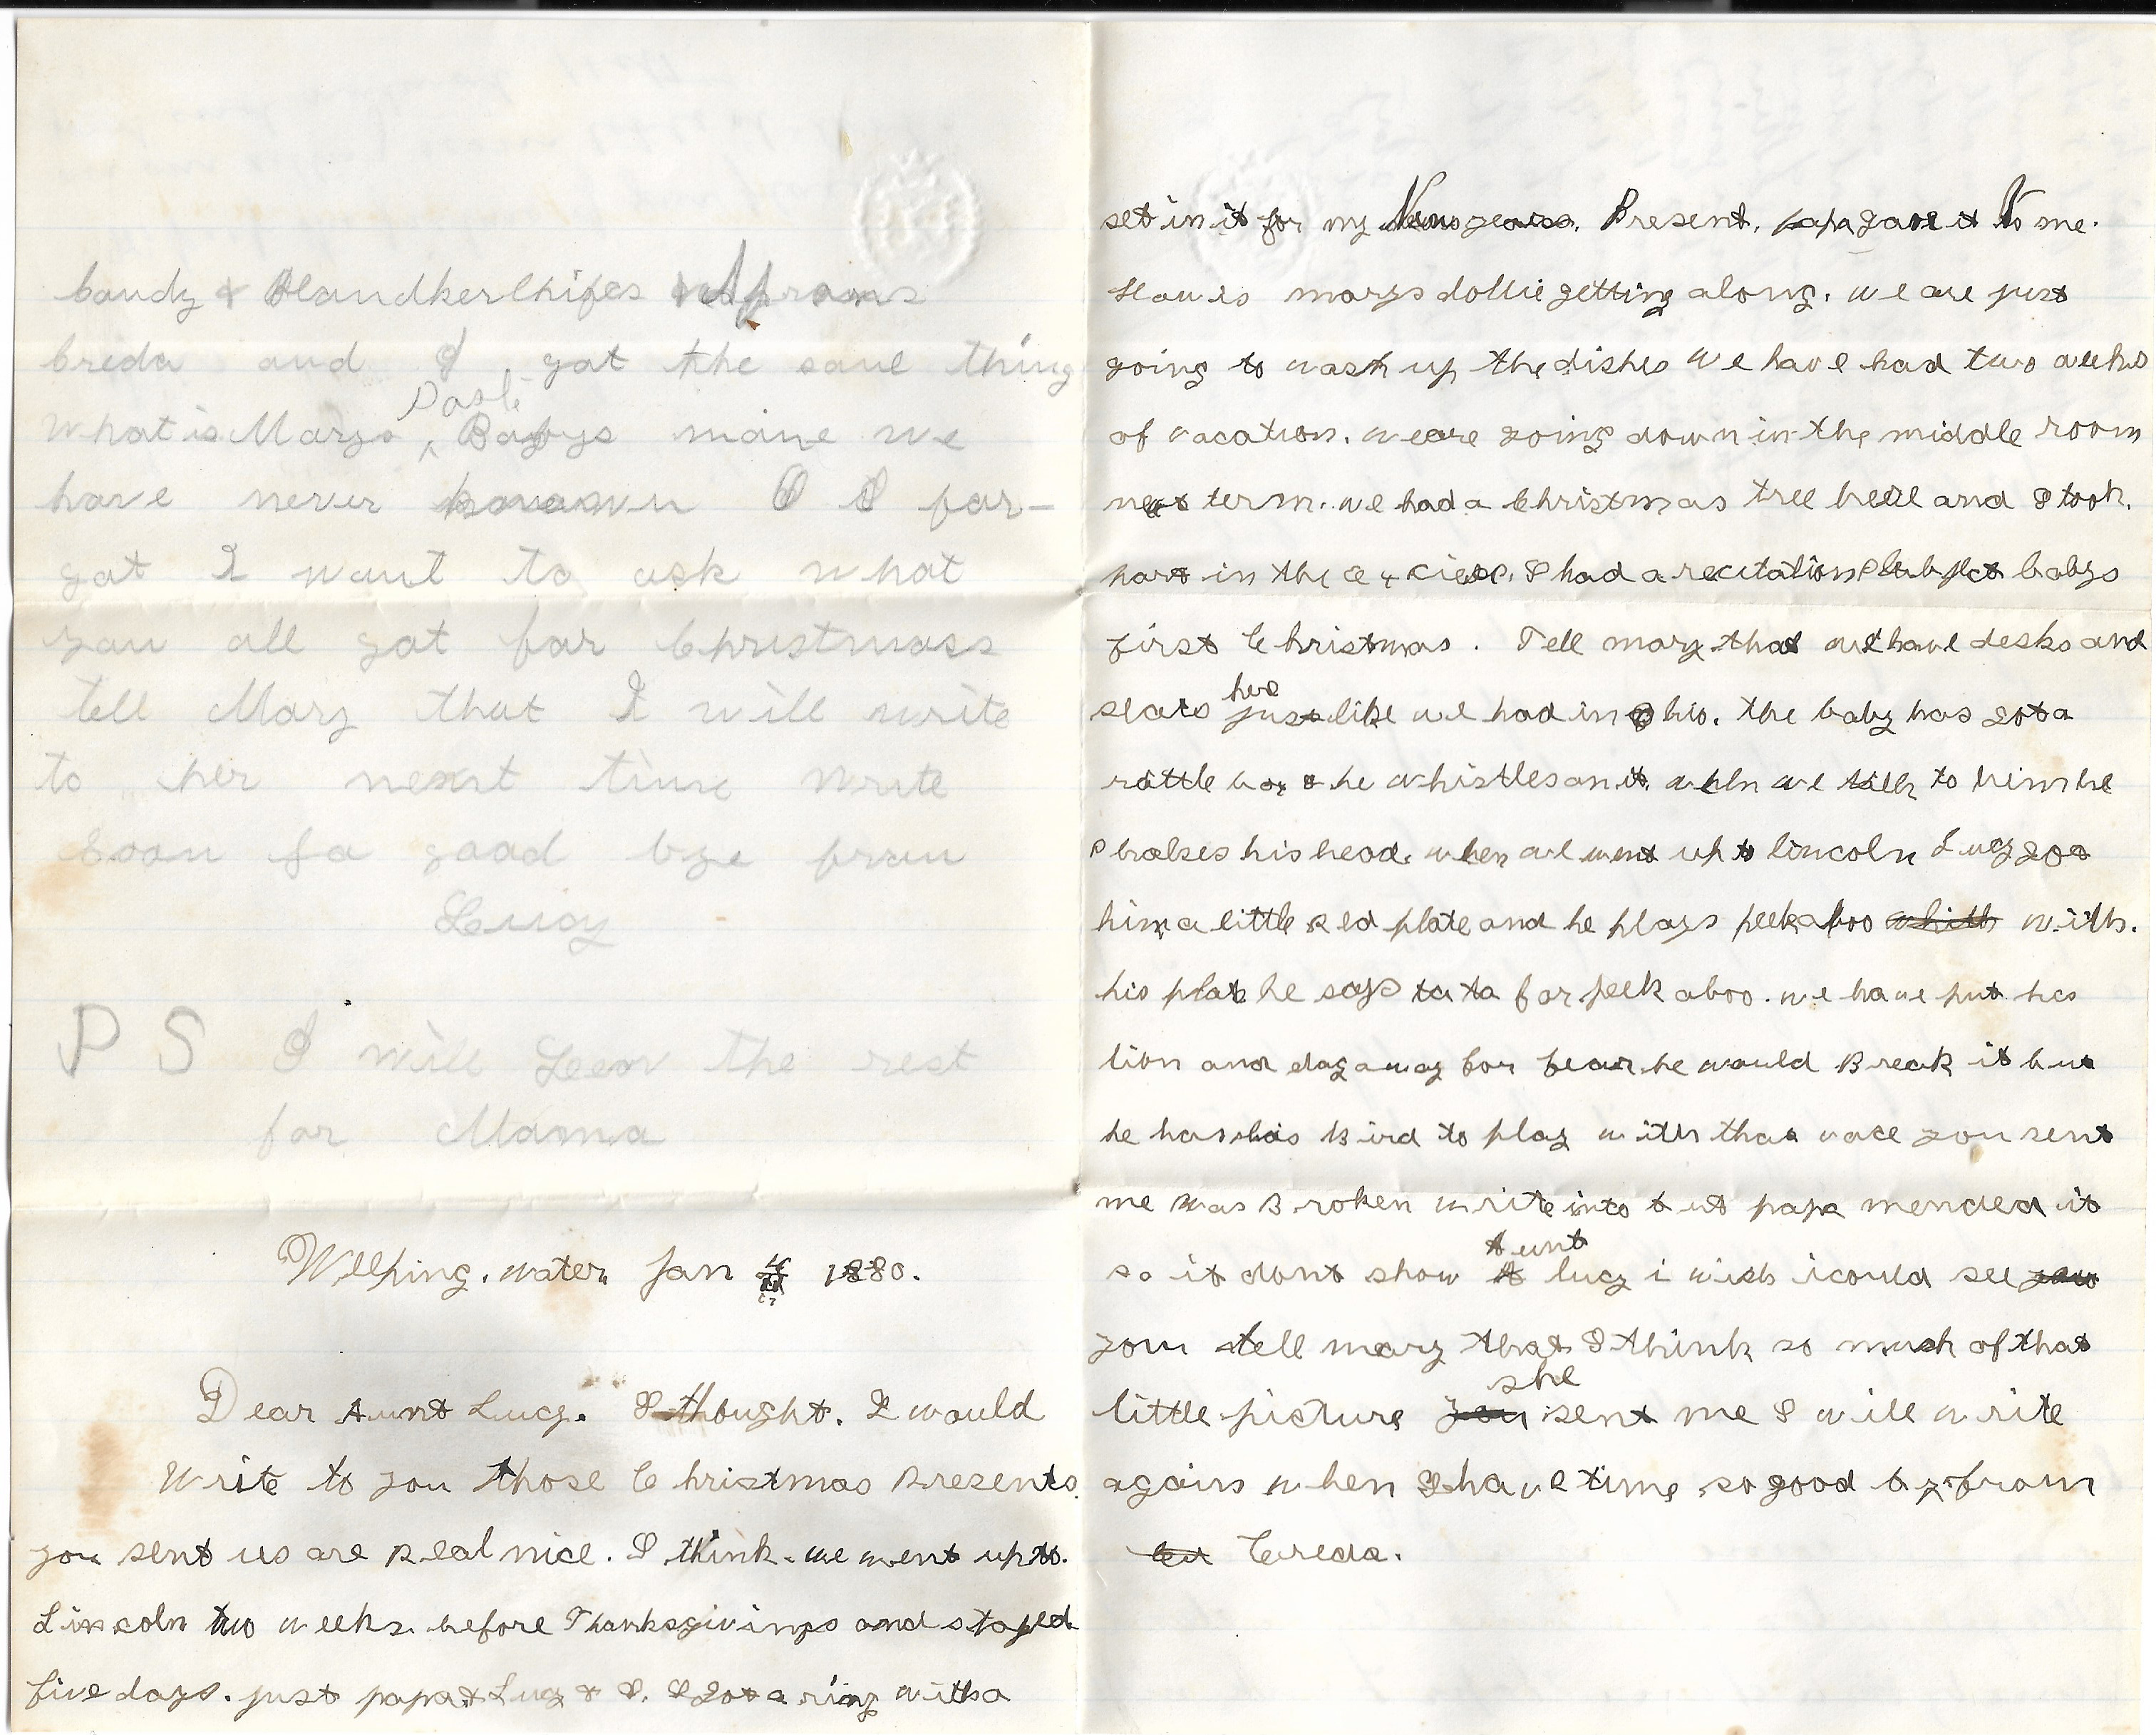 candy & Handkerchifes Aprons
creda and I got the same thing
Dast
what is Marys Babys name we
have never known O I for-
got I want to ask what
you all got for Christmass
tell Mary that I will write
to her nexrt time write
soon so good bye from
Lucy
P S I will Leev the rest
for Mama
Weeping. water Jan 4 1880.
Dear Aunt Lucy. I thought. I would
write to you those Christmas Presents
you sent us are Real nice. I think. we went up to.
Lincoln two weeks before Thanksgivings and stayed
five days. just papa & Lucy & I. I got a ring with a
set in it for my New years. Present. papa gave it to me.
How is marys dollie getting along. we are just
going to wash up the dishes we have had two weeks
of vacation. we are going down in the middle room
next term. we had a Christmas tree here and I took.
part in the I had a recitation Subject babys
first Christmas. Tell mary that we have desks and
seats here just like we had in Ohio. the baby has got a
rattle box & he whistles on it. when we talk to him he
shakes his head. when we went up to lincoln Lucy got
him a little Red plate and he plays peek a boo with.
his plate he says ta ta for peek aboo. we have put his
lion and dog away for fear he would Break it but
he has his Bird to play with that vace you sent
me was Broken write into but papa mended it
so it dont show Aunt lucy i wish i could see
you tell mary that I think so much of that
little picture she sent me I will write
again when I have time so good by from
Creda.